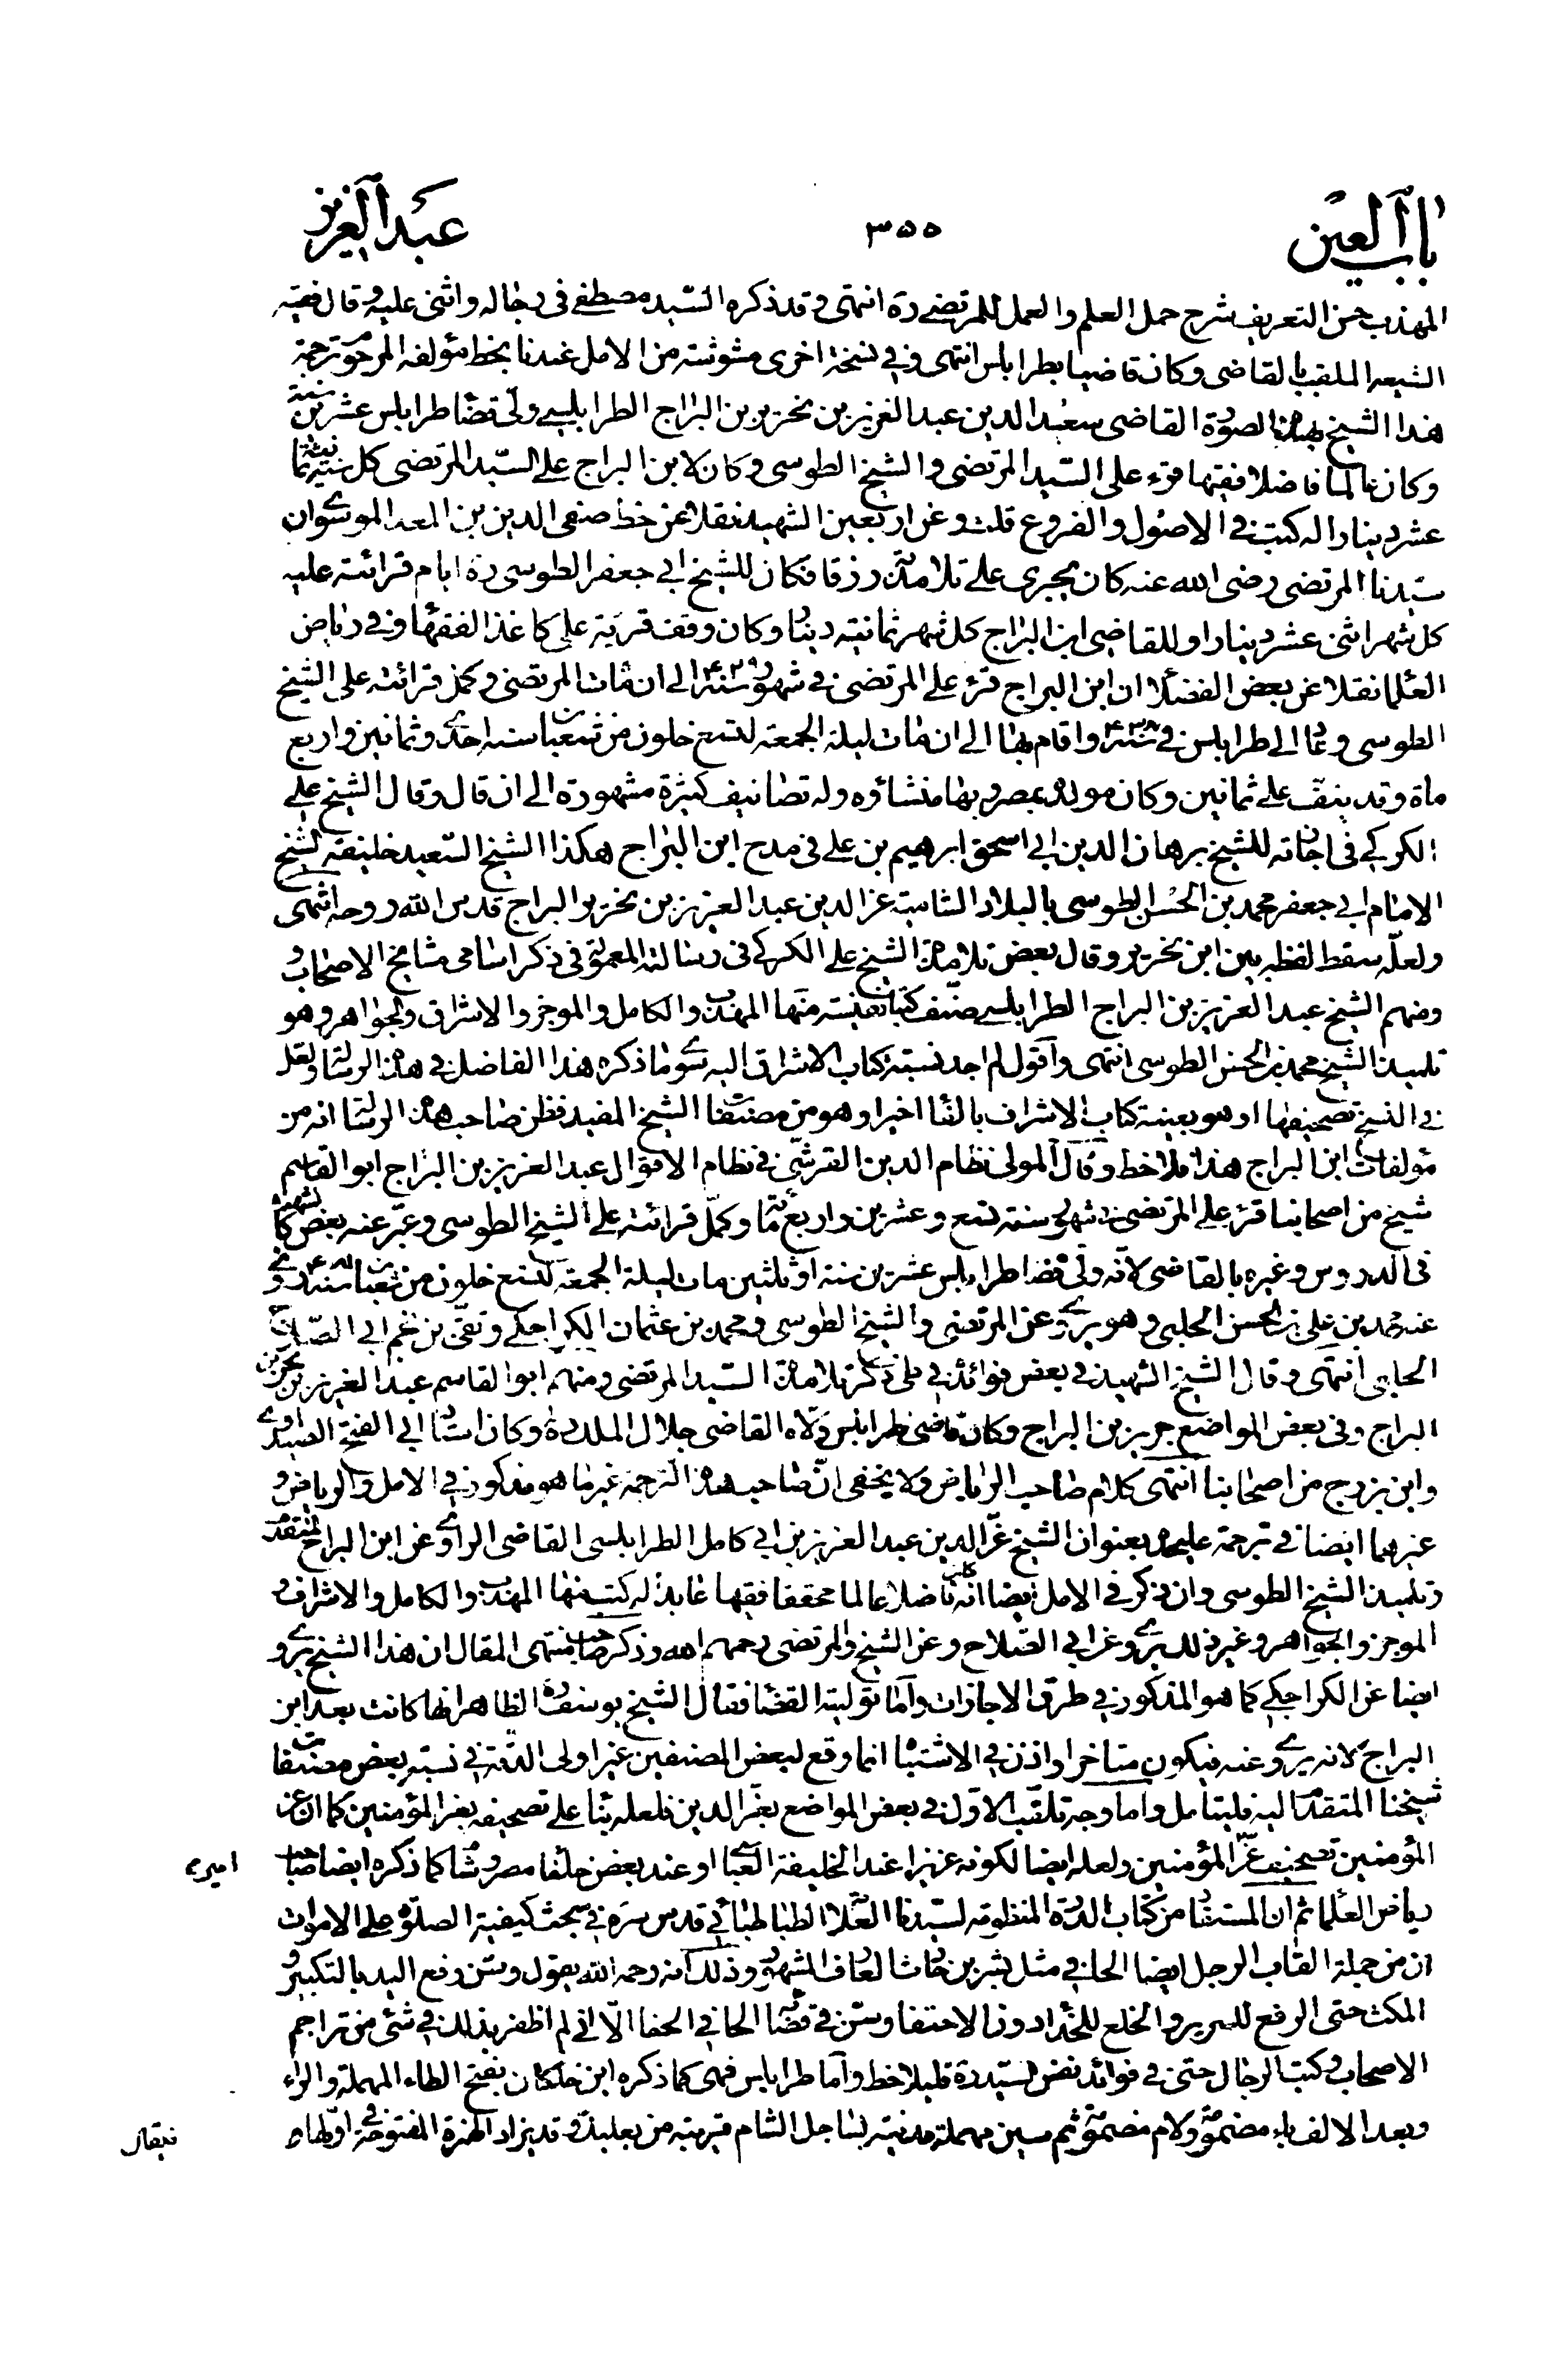 باب العين
٣٥٥
عبد العزيز
المهذب حسن التعريف شرح جمل العلم والعمل للمرتضى ره انتهى وقد ذكره السيد مصطفى فى رجاله واثنى عليه وقال فقيه
الشيعه الملقب بالقاضى وكان قاضيا بطرابلس انتهى وفى نسخة اخرى من الامل عندنا بخط مؤلفه المرحوم ترجمة
هذا الشيخ بهذه الصورة القاضى سعد الدين عبد العزيز بن نحرير بن البراج الطرابلسى ولى قضا طرابلس عشرين سنة
وكان عالما فاضلا فقيها قرء على السيد المرتضى والشيخ الطوسى وكان لابن البراج على السيد المرتضى كل
عشر دينارا له كتب فى الاصول والفروع قلت وعن اربعين الشهيد نقلا عن خط صفى الدين بن المعد الموسوى ان
سيدنا المرتضى رضى الله عنه كان يجرى على تلامذته رزقا فكان للشيخ ابى جعفر الطوسى ره ايام قرائته عليه
كل شهر اثنى عشر دينارا وللقاضى ابن البراج كل شهر ثمانية دينار وكان وقف قرية على كاغذ الفقهاء وفى رياض
العلما نقلا عن بعض الفضلا ان ابن البراج قرء على المرتضى فى شهور سنة ٤٢٩ الى ان مات المرتضى وكمل قرائته على الشيخ
الطوسى وعاد الى طرابلس فى سنة ٤٣٨ واقام بها الى ان مات ليلة الجمعة لتسع خلون من شعبان سنه احدى وثمانين واربع
ماة وقد نيف على ثمانين وكان مولده بمصر وبها منشاؤه وله تصانيف كثيرة مشهورة الى ان قال وقال الشيخ على
الكركى فى اجازته للشيخ برهان الدين ابى اسحق ابرهيم بن على فى مدح ابن البراج هكذا الشيخ السعيد خليفة الشيخ
الامام ابى جعفر محمد بن الحسن الطوسى بالبلاد الشامية عز الدين عبد العزيز بن نحرير البراج قدس الله روحه انتهى
ولعله سقط لفظه بين ابن نحرير وقال بعض تلامذة الشيخ على الكركى فى رسالته المعمولة فى ذكر اسامى مشايخ الاصحاب
ومنهم الشيخ عبد العزيز بن البراج الطرابلسى صنف كتبا نفيسة منها المهذب والكامل والموجز والاشراق والجواهر وهو
تلميذ الشيخ محمد بن الحسن الطوسى انتهى واقول لم اجد نسبة كتاب الاشراق اليه سوى ما ذكره هذا الفاضل فى هذه الرسالة ولعل
فى النسخ تصحيفها او هو بعينه كتاب الاشراف بالفا اخيرا وهو من مصنفات الشيخ المفيد فظن صاحب هذه الرسالة انه من
مؤلفات ابن البراج هذا فلاحظ وقال المولى نظام الدين القرشى فى نظام الاقوال عبد العزيز بن البراج ابو القاسم
شيخ من اصحابنا قرء على المرتضى فى شهور سنة تسع وعشرين واربع مائة وكمل قرائته على الشيخ الطوسى وعبر عنه بعض كالشهيد
فى الدروس وغيره بالقاضى لانه ولى قضا طرابلس عشرين سنة او ثلثين مات ليلة الجمعة لتسع خلون من شعبان
عنه محمد بن على بن الحسن الحلبى وهو يروى عن المرتضى والشيخ الطوسى ومحمد بن عثمان الكراجكى وتقى بن نجم ابى الصلاح
الحلبى انتهى وقال الشيخ الشهيد فى بعض فوائده فى طى ذكر تلامذة السيد المرتضى ومنهم ابو القاسم عبد العزيز بن نحرير بن
البراج وفى بعض المواضع جرير بن البراج وكان قاضى طرابلس ولاه القاضى جلال الملك ره وكان استاد ابى الفتح الصيداوى
وابن رزوج من اصحابنا انتهى كلام صاحب الرياض ولا يخفى ان صاحب هذه الترجمة غير ما هو مذكور فى الامل والرياض و
غيرهما ايضا فى ترجمة عليحده بعنوان الشيخ عز الدين عبد العزيز بن ابى كامل الطرابلسى القاضى الراوى عن ابن البراج المتقدم
وتلميذ الشيخ الطوسى وان ذكر فى الامل ايضا انه كان فاضلا عالما محققا فقيها عابدا له كتب منها المهذب والكامل والاشراف و
الموجز والجواهر وغير ذلك يروى عن ابى الصلاح وعن الشيخ والمرتضى رحمهم الله وذكر صاحب منتهى المقال ان هذا الشيخ يروى
ايضا عن الكراجكى كما هو المذكور فى طرق الاجازات واما تولية القضا فقال الشيخ يوسف ره الظاهر انها كانت بعد ابن
البراج لانه يروى عنه فيكون متاخرا واذن فى الاشتباه انما وقع لبعض المصنفين غير اولى الدقة فى نسبة بعض مصنفات
شيخنا المتقدم اليه فليتامل واما وجه تلقب الاول فى بعض المواضع بعز الدين فلعله بناء على تصحيفه بعز المؤمنين كما ان عز
المؤمنين تصحيف غر المؤمنين ولعله ايضا لكونه عزيزا عند الخليفة العباسى او عند بعض خلفا مصر وشام كما ذكره ايضا صاحب
رياض العلما ثم ان المستفاد من كتاب الدرة المنظومة لسيدنا العلامة الطباطبائى قدس سره فى بحث كيفية الصلوة على الاموات
ان من جملة القاب الرجل ايضا الحافى مثل بشر بن حارث العارف المشهور وذلك انه رحمه الله يقول وسن رفع اليد بالتكبير و
المكث حتى الرفع للسرير والخلع للحذاء دون الاحتفا وسن فى قضاء الحافى الحفا الا انى لم اظفر بذلك فى شئ من تراجم
الاصحاب وكتب الرجال حتى فى فوائد نفس السيد ره فليلاحظ واما طرابلس فهى كما ذكره ابن خلكان بفتح الطاء المهملة والراء
وبعد الالف باء مضمومة ولام مضمومة ثم سين مهملة مدينة بساحل الشام قريبة من بعلبك وقد يزاد الهمزة المفتوحة فى اولها و
فيقال